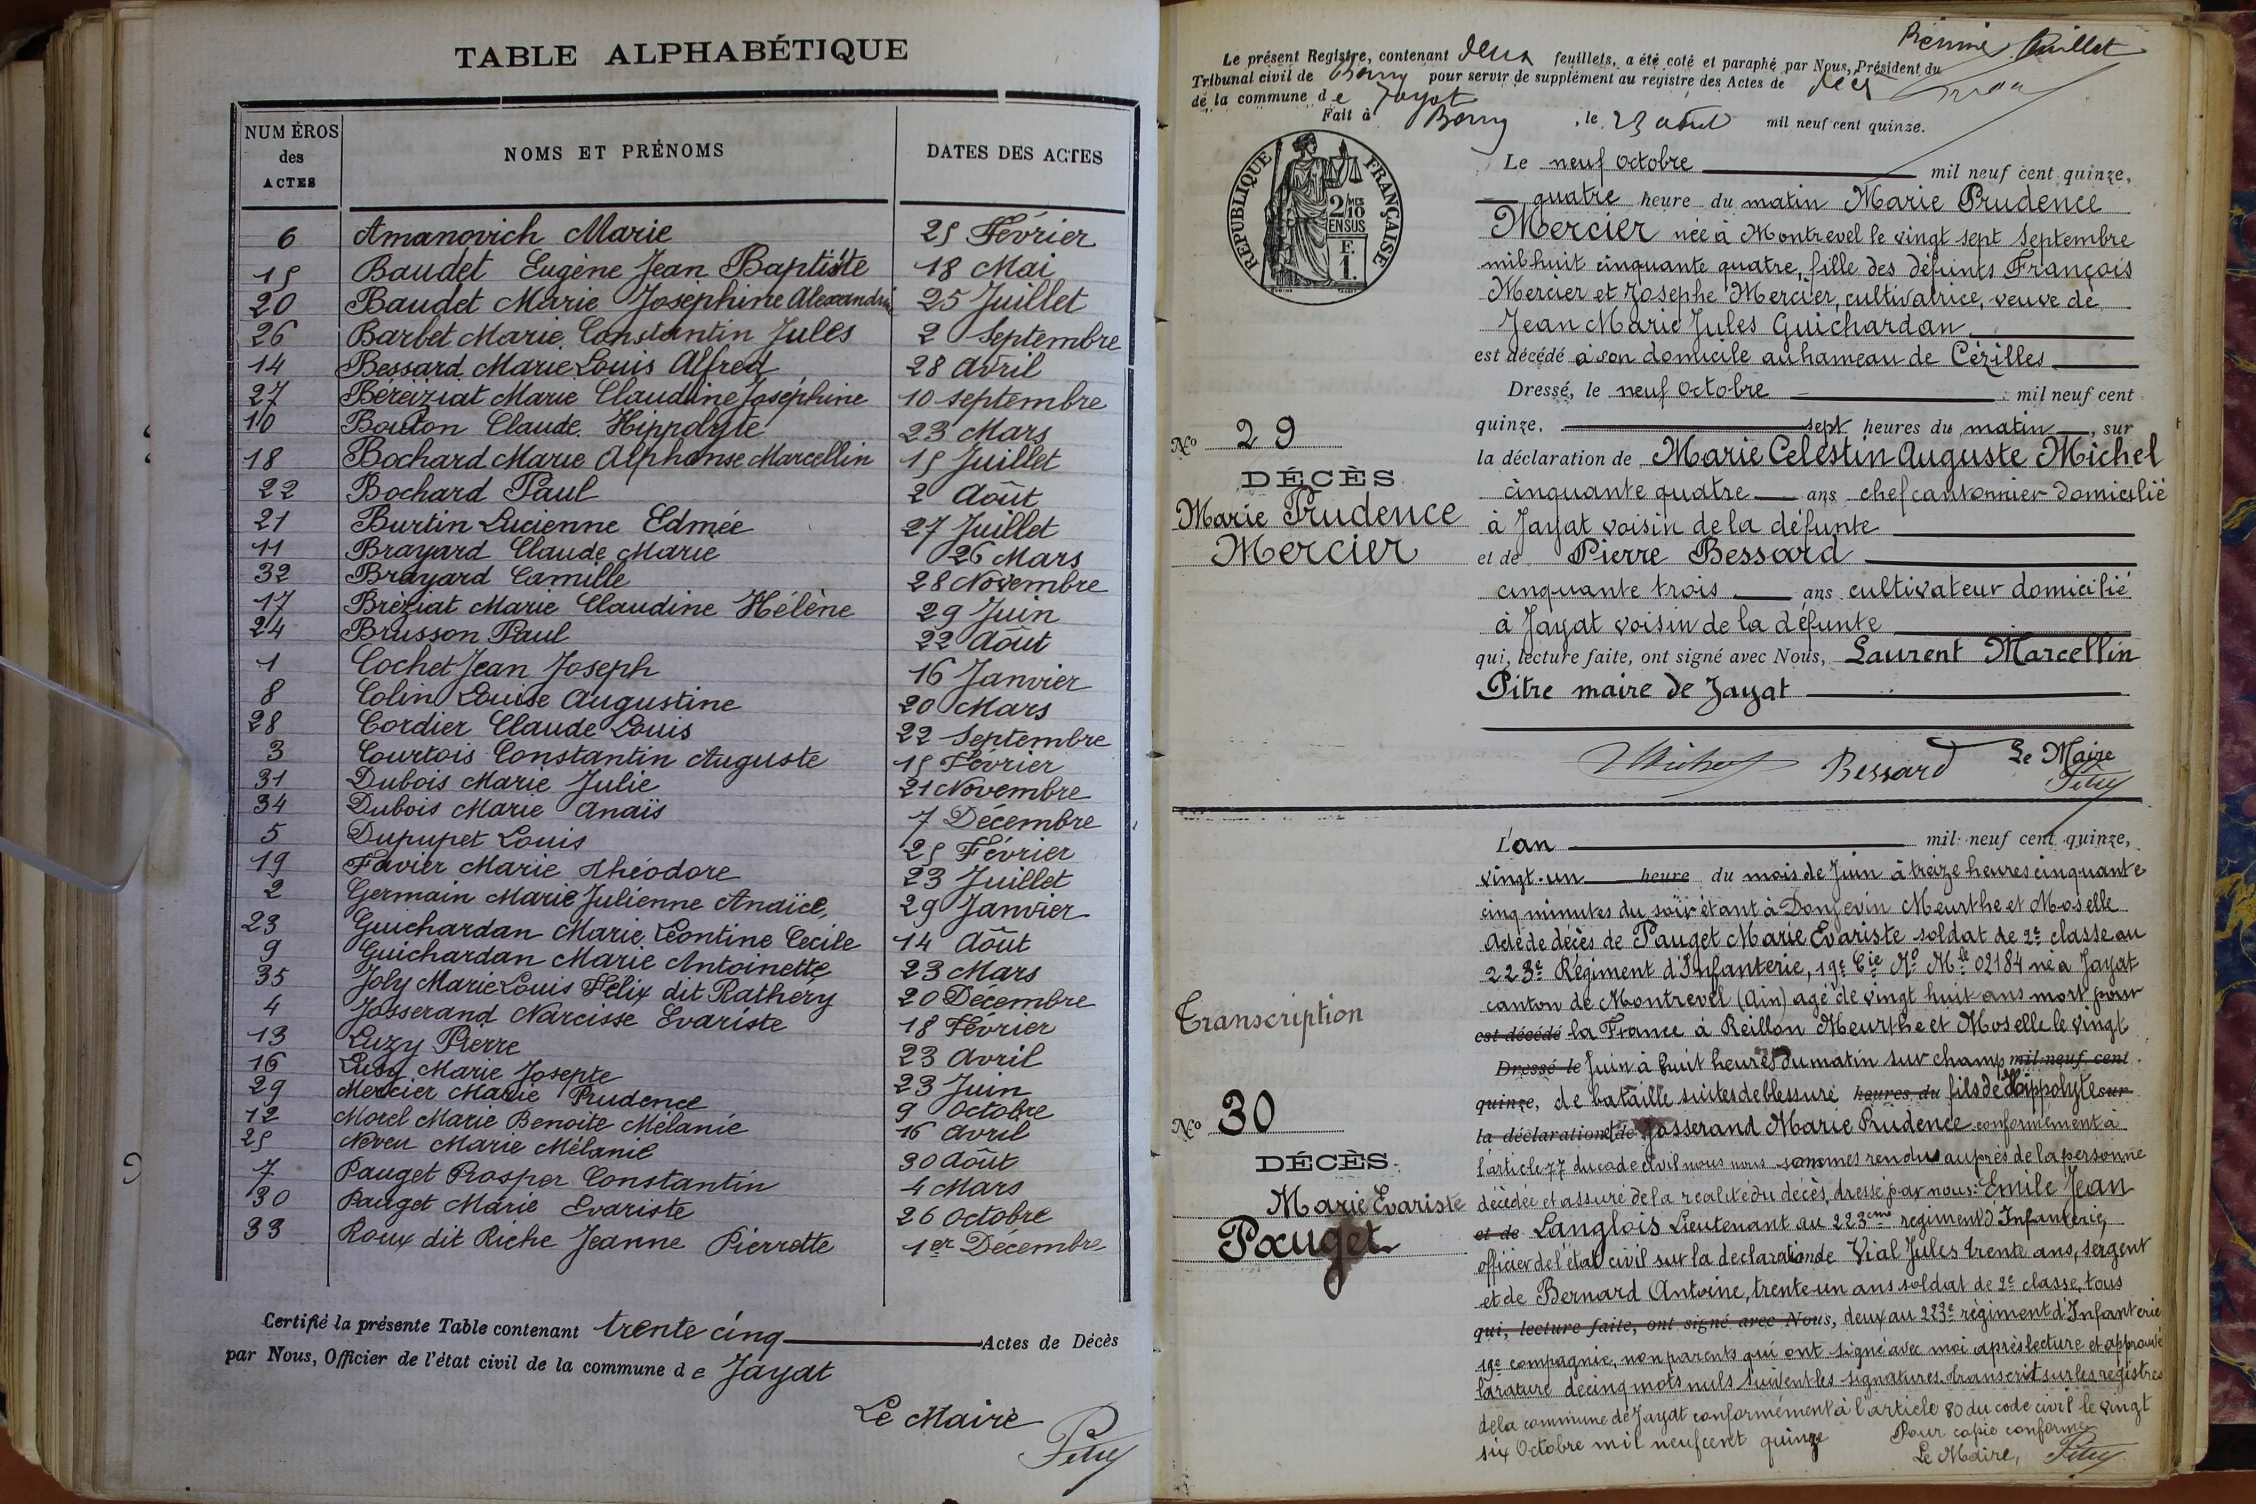 TABLE ALPHABÉTIQUE
NUMÉROS des ACTES | NOMS ET PRÉNOMS | DATES DES ACTES
6 Amanovich Marie 25 Février
15 Baudet Eugène Jean Baptiste 18 Mai
20 Baudet Marie Joséphine Alexandrine 25 Juillet
26 Barbet Marie Constantin Jules 2 Septembre
14 Bessard Marie Louis Alfred 28 Avril
27 Béréiziat Marie Claudine Joséphine 10 Septembre
10 Bouton Claude Hippolyte 23 Mars
18 Bochard Marie Alphonse Marcellin 15 Juillet
22 Bochard Paul 2 Août
21 Burtin Lucienne Edmée 27 Juillet
11 Brayard Claude Marie 26 Mars
32 Brayard Camille 28 Novembre
17 Bréziat Marie Claudine Hélène 29 Juin
24 Brusson Paul 22 Août
1 Cochet Jean Joseph 16 Janvier
8 Colin Louise Augustine 20 Mars
28 Cordier Claude Louis 22 Septembre
3 Courtois Constantin Auguste 15 Février
31 Dubois Marie Julie 21 Novembre
34 Dubois Marie Anaïs 7 Décembre
5 Dupupet Louis 25 Février
19 Favier Marie Théodore 23 Juillet
2 Germain Marie Julienne Anaïce 29 Janvier
23 Guichardan Marie Léontine Cecile 14 Août
9 Guichardan Marie Antoinette 23 Mars
35 Joly Marie Louis Félix dit Rathery 20 Décembre
4 Josserand Narcisse Evariste 18 Février
13 Luzy Pierre 23 Avril
16 Luzy Marie Josepte 23 Juin
29 Mercier Marie Prudence 9 Octobre
12 Morel Marie Benoite Mélanie 16 Avril
25 Neveu Marie Mélanie 30 Août
7 Pauget Prosper Constantin 4 Mars
30 Pauget Marie Evariste 26 Octobre
33 Roux dit Riche Jeanne Pierrette 1er Décembre
Certifié la présente Table contenant trente cinq Actes de Décès
par Nous, Officier de l'état civil de la commune de Jayat
Le Maire
Pitre
Le présent Registre, contenant deux feuillets, a été coté et paraphé par Nous, Président du
Tribunal civil de Bourg pour servir de supplément au registre des Actes de décès
de la commune de Jayat
Fait à Bourg, le 23 août mil neuf cent quinze.
feuillet
RÉPUBLIQUE FRANÇAISE
2/10 EN SUS
F. 1.
Le neuf Octobre mil neuf cent quinze,
quatre heure du matin Marie Prudence
Mercier née à Montrevel le vingt sept Septembre
mil huit cinquante quatre, fille des défunts François
Mercier et Josephe Mercier, cultivatrice, veuve de
Jean Marie Jules Guichardan
est décédé à son domicile au hameau de Cézilles
Dressé, le neuf Octobre mil neuf cent
quinze, sept heures du matin, sur
No 29
la déclaration de Marie Celestin Auguste Michel
DÉCÈS
cinquante quatre ans chef cantonnier domicilié
Marie Prudence
à Jayat voisin de la défunte
Mercier
et de Pierre Bessard
cinquante trois ans cultivateur domicilié
à Jayat voisin de la défunte
qui, lecture faite, ont signé avec Nous, Laurent Marcellin
Pitre maire de Jayat
Michel Bessard Le Maire
Pitre
L'an mil neuf cent quinze,
vingt-un heure du mois de Juin à treize heures cinquante
cinq minutes du soir étant à Domjevin Meurthe et Moselle
Acte de décès de Pauget Marie Evariste soldat de 2e classe au
223e Régiment d'Infanterie, 19e Cie No Mle 02184 né a Jayat
canton de Montrevel (Ain) agé de vingt huit ans mort pour
Transcription
est décédé la France à Reillon Meurthe et Moselle le vingt
Dressé le Juin à huit heures du matin sur champ mil neuf cent
quinze, de bataille suites de blessure heures du fils de Hippolyte sur
No 30
la déclaration de et Josserand Marie Prudence conformément à
DÉCÈS
l'article 77 du code civil nous nous sommes rendus auprès de la personne
Marie Evariste
décédée et assuré de la réalité du décès, dressé par nous: Emile Jean
Pauget
et de Langlois Lieutenant au 223eme regiment d'Infanterie,
officier de l'état civil sur la declaration de Vial Jules trente ans, sergent
et de Bernard Antoine, trente-un ans soldat de 2e classe, tous
qui, lecture faite, ont signé avec Nous, deux au 223e régiment d'Infanterie
19e compagnie, non parents qui ont signé avec moi après lecture et approuvé
la rature de cinq mots nuls suivent les signatures. transcrit sur les registres
de la commune de Jayat conformément à l'article 80 du code civil le vingt
six Octobre mil neuf cent quinze Pour copie conforme
Le Maire, Pitre